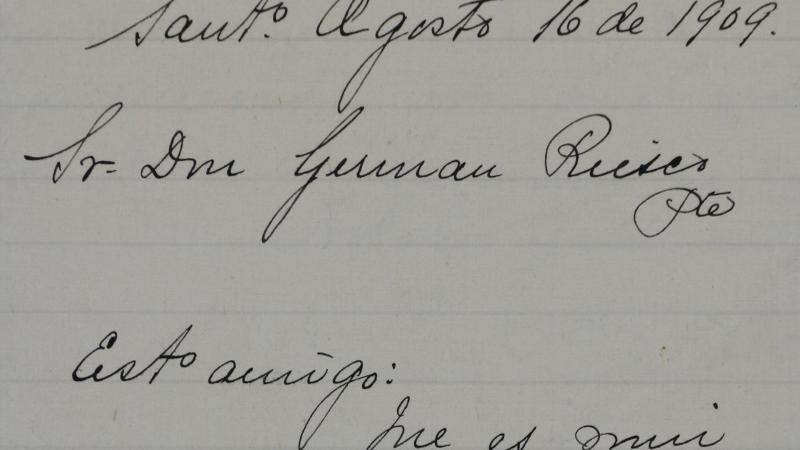 Sant.º Agosto 16 de 1909.
Sr. Don German Riesco
Pte
Est.º amigo:
Me es mui